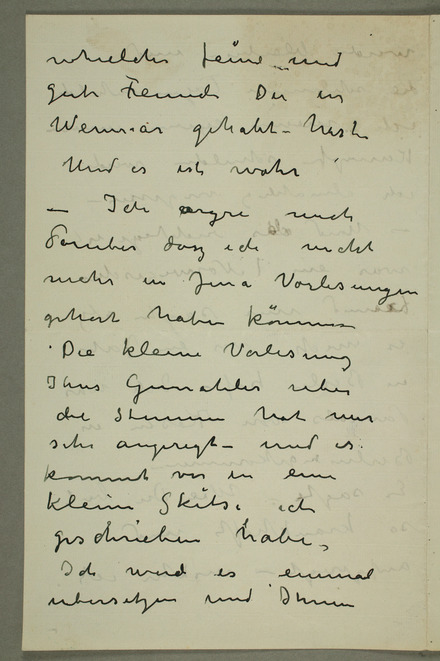 welche feine und
gute Freunde Du in
Weimar gehabt hast
Und es ist wahr
— Ich argre mich
daruber dasz ich nicht
mehr in Jena Vorlesungen
gehort haben können
Die kleine Vorlesung
Ihres Gemahles uber
die Stimmen hat mir
sehr angeregt – und es
kommt vor in eine
kleine Skitse ich
geschrieben habe,
Ich werd es einmal
ubersetzen und Ihnen